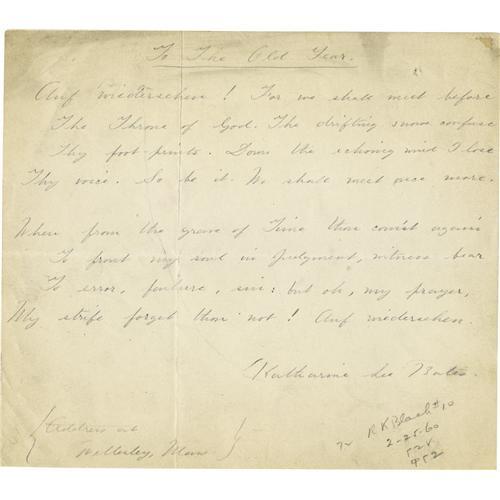 To The Old Year.
Auf wiedersehen! For we shall meet before
The Throne of God. The drifting snows confuse
Thy foot-prints. Down the echoing wind I lose
Thy voice. So be it. We shall meet once more.
When from the grave of Time thou com'st again
To front my soul in Judgment, witness bear
To error, failure, sin: but oh, my prayer,
My strife forget thou not! Auf wiedersehen.
Katharine Lee Bates.
Address at
Wellesley, Mass
R K Black #10
2-25-60